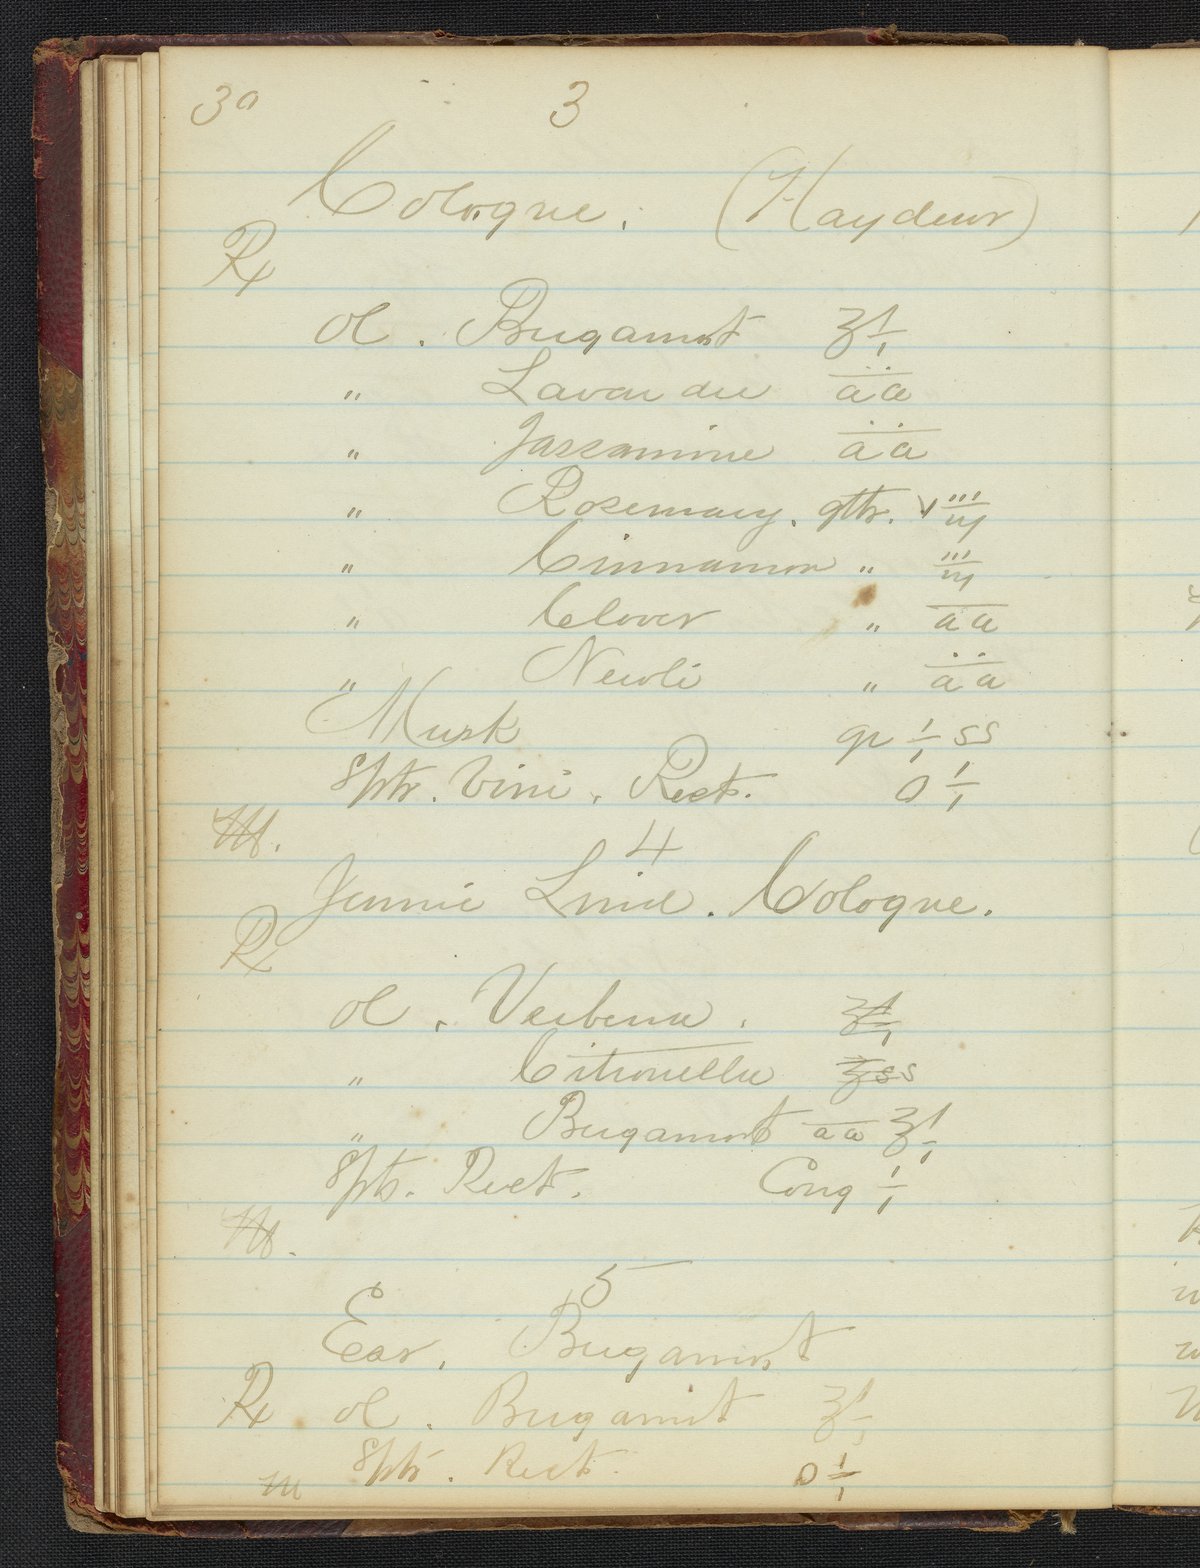 30 3
Cologne. (Hayden)
Rx
Ol. Burgamot ʒ i
" Lavandu āā
" Jassamine āā
" Rosemary. gtts. viij
" Cinnamon " iij
" Cloves " āā
" Neroli " āā
Musk gr i ss
Spts. Vini. Rect. O i
M.
4
Jennie Lind. Cologne.
Rx
Ol. Verbena. ʒ i
" Citronella ʒ ss
" Burgamot āā ʒ i
Spts. Rect. Cong i
M.
5
Ess. Burgamot
Rx Ol. Burgamot
Spts. Rect. O i
M